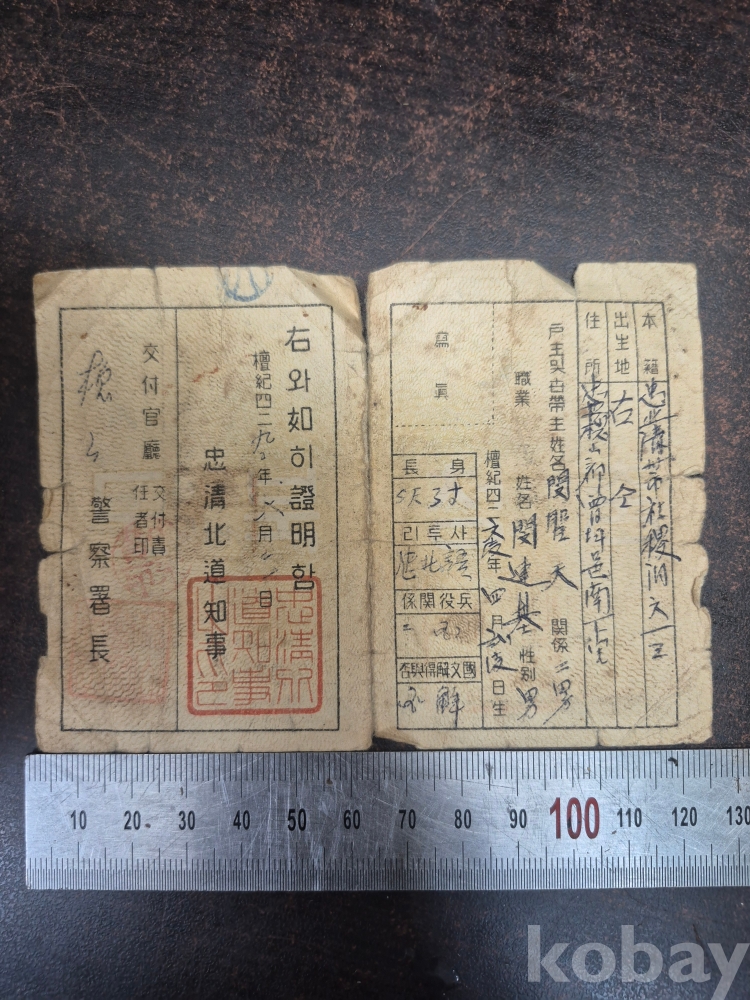 本籍
出生地 右仝
住所 忠北槐山郡曾坪邑南下里
戶主又는世帶主姓名 閔聖天 關係 二男
職業
姓名 閔建基 性別 男
檀紀四二 年四月 日生
寫眞
身長 5尺3寸
사투리 忠北語
兵役關係
國文解得與否 解
右와如히證明함
檀紀四二九 年 月 日
忠淸北道知事
交付官廳
交付責任者印
槐山警察署長
忠淸北道知事之印
10 20 30 40 50 60 70 80 90 100 110 120 130
kobay